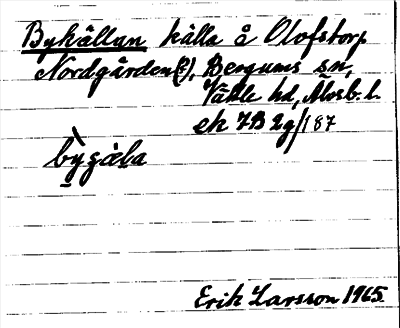 Bykällan källa å Olofstorp
Nordgården(?), Bergums sn,
Vättle hd, Älvsb. l.
ek 7B 2g/187
bygåla
Erik Larsson 1965.